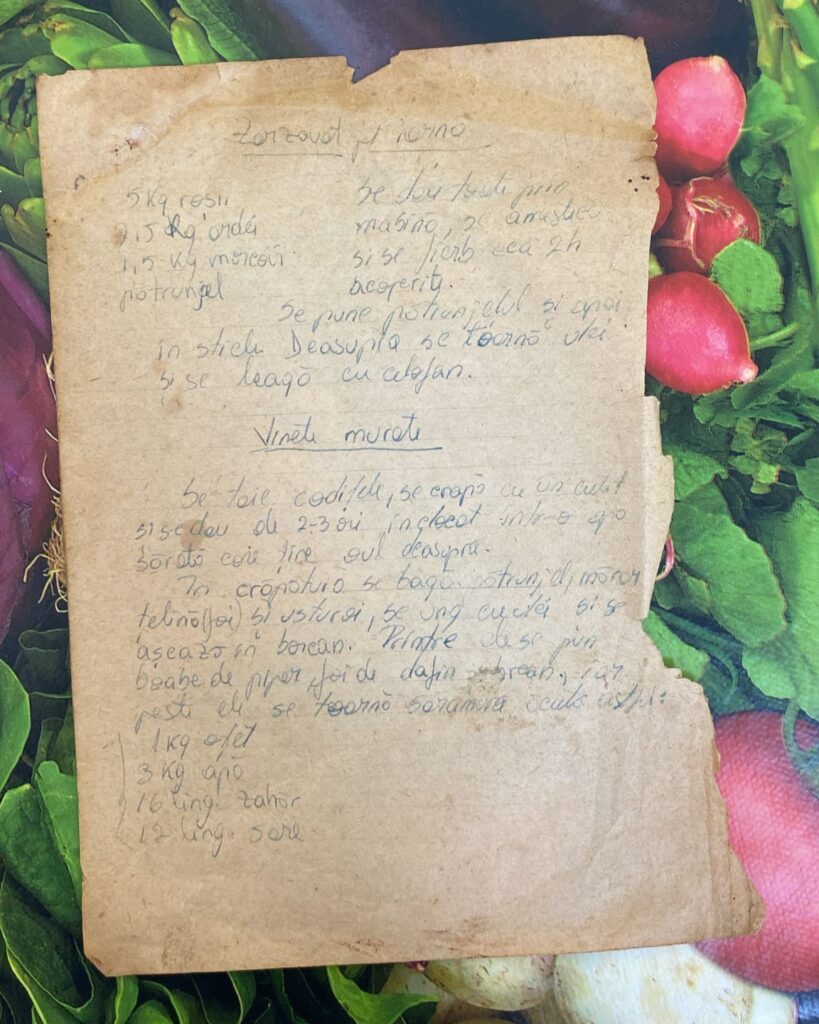 Zarzavat pt iarnă
5 Kg roșii
1,5 Kg ardei
1,5 Kg morcovi
pătrunjel
Se dau toate prin
mașină, se amestecă
și se fierb cca 2h
acoperiți.
Se pune pătrunjelul și apoi
în sticle. Deasupra se toarnă ulei
și se leagă cu celofan.
Vinete murate
Se taie codițele, se crapă cu un cuțit
și se dau de 2-3 ori în clocot într-o apă
sărată care ține oul deasupra.
În crăpătură se bagă pătrunjel, mărar
țelină (foi) și usturoi, se ung cu ulei și se
așează în borcan. Printre ele se pun
boabe de piper, foi de dafin, iar
peste ele se toarnă saramura astfel:
1 kg oțet
3 Kg apă
16 ling. zahăr
12 ling. sare